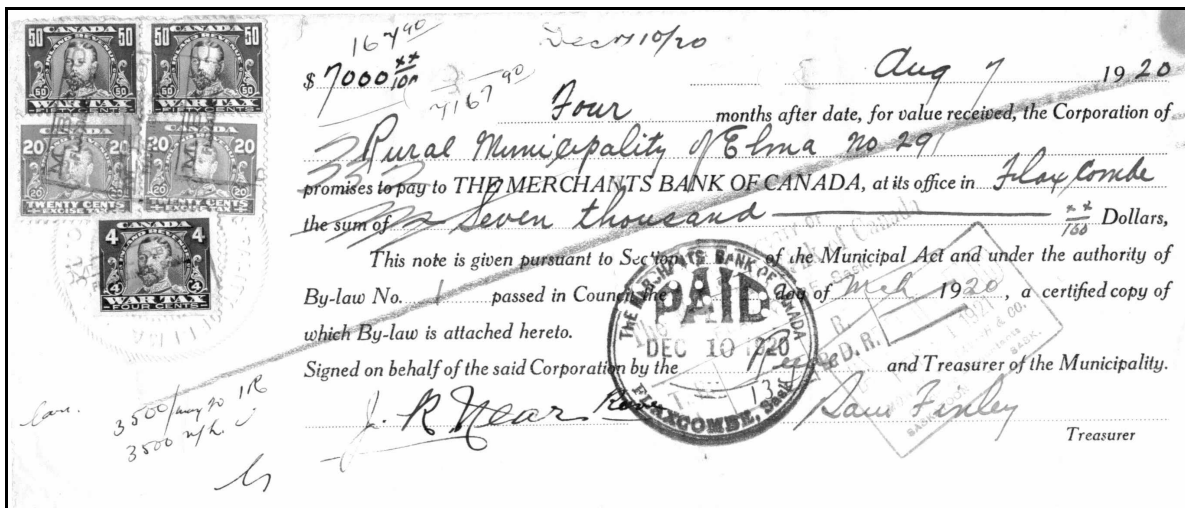 50 CANADA 50
INLAND REVENUE
50 50
WAR TAX
FIFTY CENTS
50 CANADA 50
INLAND REVENUE
50 50
WAR TAX
FIFTY CENTS
CANADA
20 20
20 20
TWENTY CENTS
EXCISE TAX
CANADA
20 20
20 20
TWENTY CENTS
EXCISE TAX
CANADA
4 4
4 4
WAR TAX
FOUR CENTS
167 90
Dec 10/20
$ 7000 xx/100
7167 90
Aug 7 1920
Four months after date, for value received, the Corporation of
Rural Municipality of Elma no 291
promises to pay to THE MERCHANTS BANK OF CANADA, at its office in Flaxcombe
the sum of Seven thousand xx/100 Dollars,
This note is given pursuant to Section of the Municipal Act and under the authority of
By-law No. 1 passed in Council the day of Mch 1920, a certified copy of
which By-law is attached hereto.
Signed on behalf of the said Corporation by the Reeve and Treasurer of the Municipality.
J. R. Near Reeve
Sam Finley
Treasurer
THE MERCHANTS BANK OF CANADA
PAID
DEC 10 1920
FLAXCOMBE, Sask.
D. R.
3500
3500